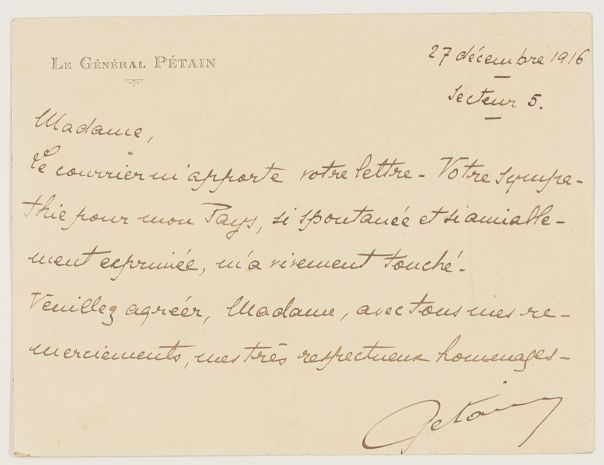 LE GÉNÉRAL PÉTAIN
27 décembre 1916
Secteur 5.
Madame,
Le courrier m'apporte votre lettre - Votre sympa-
thie pour mon Pays, si spontanée et si aimable-
ment exprimée, m'a vivement touché -
Veuillez agréer, Madame, avec tous mes re-
merciements, mes très respectueux hommages -
Pétain